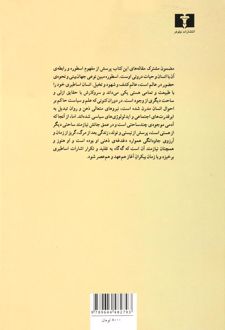 انتشارات نیلوفر
مضمون مشترک مقاله‌های این کتاب پرسش از مفهوم اسطوره و رابطه‌ی
آن با انسان و حیات درونی اوست. اسطوره مبین نوعی جهان‌بینی و نحوه‌ی
حضور در عالم است، عالم کشف و شهود و تخیل. انسان اساطیری خود را
با طبیعت و تمامی هستی یکی می‌داند و سروکارش با حقایق ازلی و
ساحت دیگری از وجود است. در دوران کنونی که علم و سیاست حاکم بر
احوال انسان مدرن شده است، نیروهای متعالی ذهن و روان تبدیل به
ابرقدرت‌های اجتماعی و ایدئولوژی‌های سیاسی شده‌اند. اما، از آنجا که
آدمی موجودی چندساحتی است و در عمق جانش نیازمند ساحتی دیگر
از هستی است، پرسش از نیستی و تولد، زندگی بعد از مرگ، گریز از زمان و
آرزوی جاودانگی همواره دغدغه‌ی ذهنی او بوده است و او هنوز و
همچنان نیازمند آن است که گه‌گاه به تقلید و تکرار اشارات اساطیری
برخیزد و با زمان بیکران آغاز هم‌عهد و هم‌عصر شود.
9789644482793
۸۰۰۰ تومان